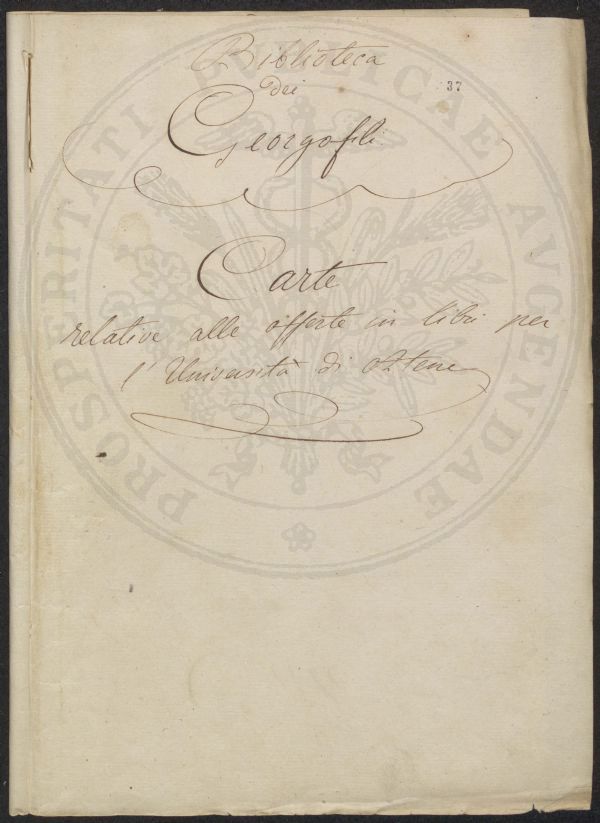 Biblioteca
dei
37
Georgofili
Carte
relative alle offerte in libri per
l'Università di Atene
PROSPERITATI PVBLICAE AVGENDAE